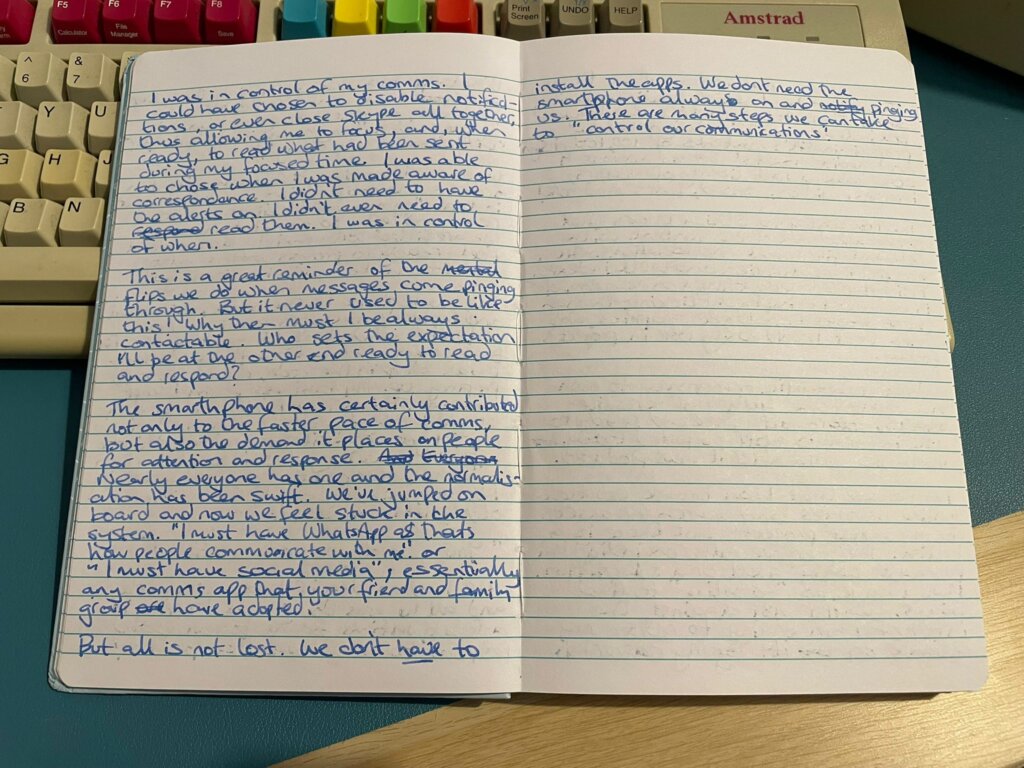 F5
Calculator
F6
File
Manager
F7
F8
Save
Print
Screen
UNDO
HELP
Amstrad
^
6
&
7
Y
U
G
H
J
B
N
I was in control of my comms. I
could have chosen to disable notifica-
tions, or even close skype all together,
thus allowing me to focus, and, when
ready, to read what had been sent
during my focused time. I was able
to chose when I was made aware of
correspondence. I didn't need to have
the alerts on. I didn't even need to
respond read them. I was in control
of when.
This is a great reminder of the mental
flips we do when messages come pinging
through. But it never used to be like
this! Why then must I be always
contactable. Who sets the expectation
I'll be at the other end ready to read
and respond?
The smarthphone has certainly contributed
not only to the faster pace of comms,
but also the demand it places on people
for attention and response. And Everyone
Nearly everyone has one and the normalis-
ation has been swift. We've jumped on
board and now we feel stuck in the
system. "I must have WhatsApp as thats
how people communicate with me" or
"I must have social media", essentially
any comms app that your friend and family
group are have adopted.
But all is not lost. We don't have to
install the apps. We don't need the
smartphone always on and notify pinging
us. There are many steps we can take
to "control our communications"